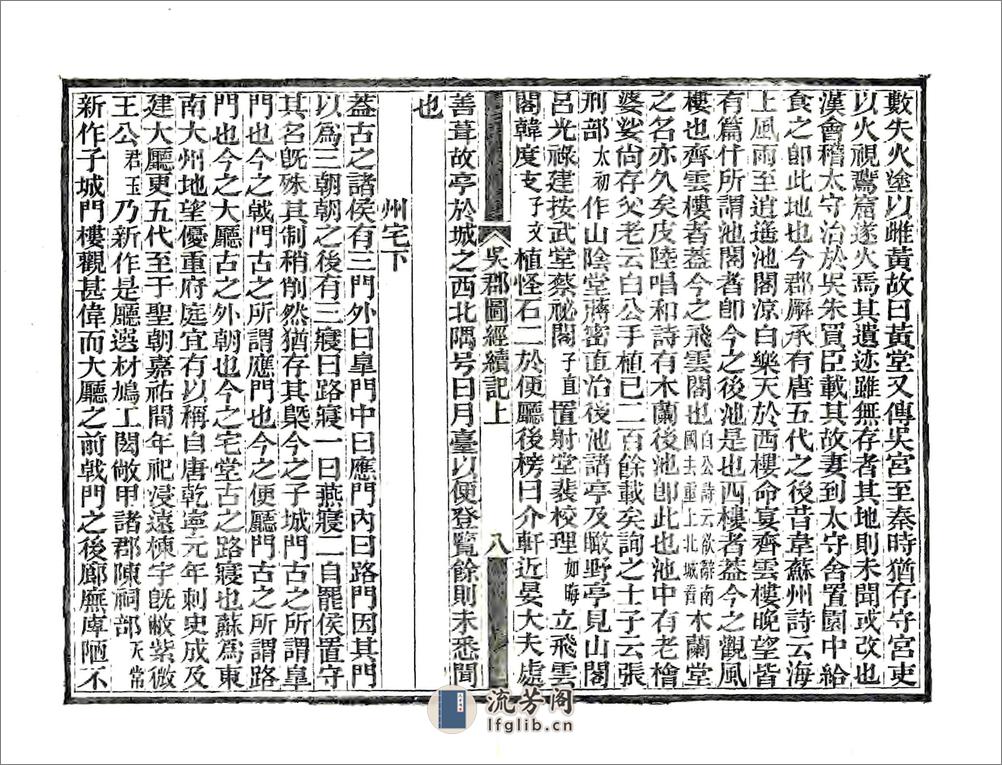 數失火塗以雌黃故曰黃堂又傳吳宮至秦時猶存守宮吏
以火視鷰窟遂火焉其遺迹雖無存者其地則未聞或改也
漢會稽太守治於吳朱買臣載其故妻到太守舍置園中給
食之卽此地也今郡廨承有唐五代之後昔韋蘇州詩云海
上風雨至逍遙池閣涼白樂天於西樓命宴齊雲樓晚望皆
有篇什所謂池閣者卽今之後池是也西樓者蓋今之觀風
樓也齊雲樓者蓋今之飛雲閣也白公詩云欲辭南國去重上北城看木蘭堂
之名亦久矣皮陸唱和詩有木蘭後池卽此也池中有老檜
婆娑尙存父老云白公手植已二百餘載矣詢之士子云張
刑部太初作山陰堂蔣密直治後池諸亭及瞰野亭見山閣
呂光祿建按武堂蔡祕閣子直置射堂裴校理如晦立飛雲
閣韓度支子文植怪石二於便廳後榜曰介軒近晏大夫處
吳郡圖經續記上 八
善葺故亭於城之西北隅号曰月臺以便登覽餘則未悉聞
也
州宅下
蓋古之諸侯有三門外曰臯門中曰應門內曰路門因其門
以為三朝朝之後有三寢曰路寢一曰燕寢二自罷侯置守
其名旣殊其制稍削然猶存其槩今之子城門古之所謂臯
門也今之戟門古之所謂應門也今之便廳門古之所謂路
門也今之大廳古之外朝也今之宅堂古之路寢也蘇為東
南大州地望優重府庭宜有以稱自唐乾寧元年刺史成及
建大廳更五代至于聖朝嘉祐間年祀浸遠棟宇旣敝紫微
王公君玉乃新作是廳選材鳩工閎敞甲諸郡陳祠部天常
新作子城門樓觀甚偉而大廳之前戟門之後廊廡庳陋不
流芳阁
lfglib.cn